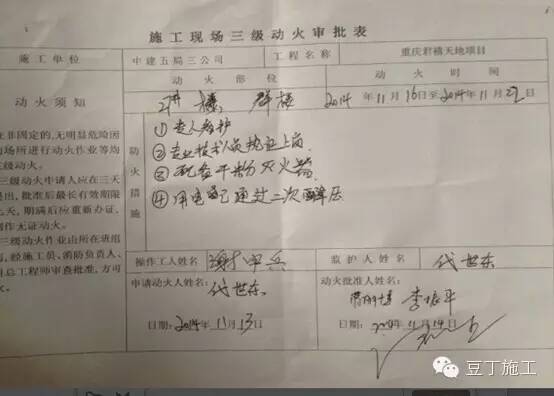 施工现场三级动火审批表
施工单位 中建五局三公司 工程名称 重庆君禧天地项目
动火须知 动火部位 动火时间
群楼 2014年11月16日至2014年11月22日
在非固定的,无明显危险因
场所进行动火作业等均
三级动火。
三级动火申请人应在三天
提出,批准后最长有效期限
七天,期满后应重新办证,
则作无证动火。
三级动火作业由所在班组
,经施工员、消防负责人、
总工程师审查批准,方可
防火措施
①专人看护
②专业技术人员执证上岗
③配备干粉灭火器
④用电 已通过二次降压
操作工人姓名 谢中兵 监护人姓名: 代世东
申请动火人姓名: 代世东
动火批准人姓名: 李振平
日期:2014年11月13日
日期:2014年11月14日
豆丁施工